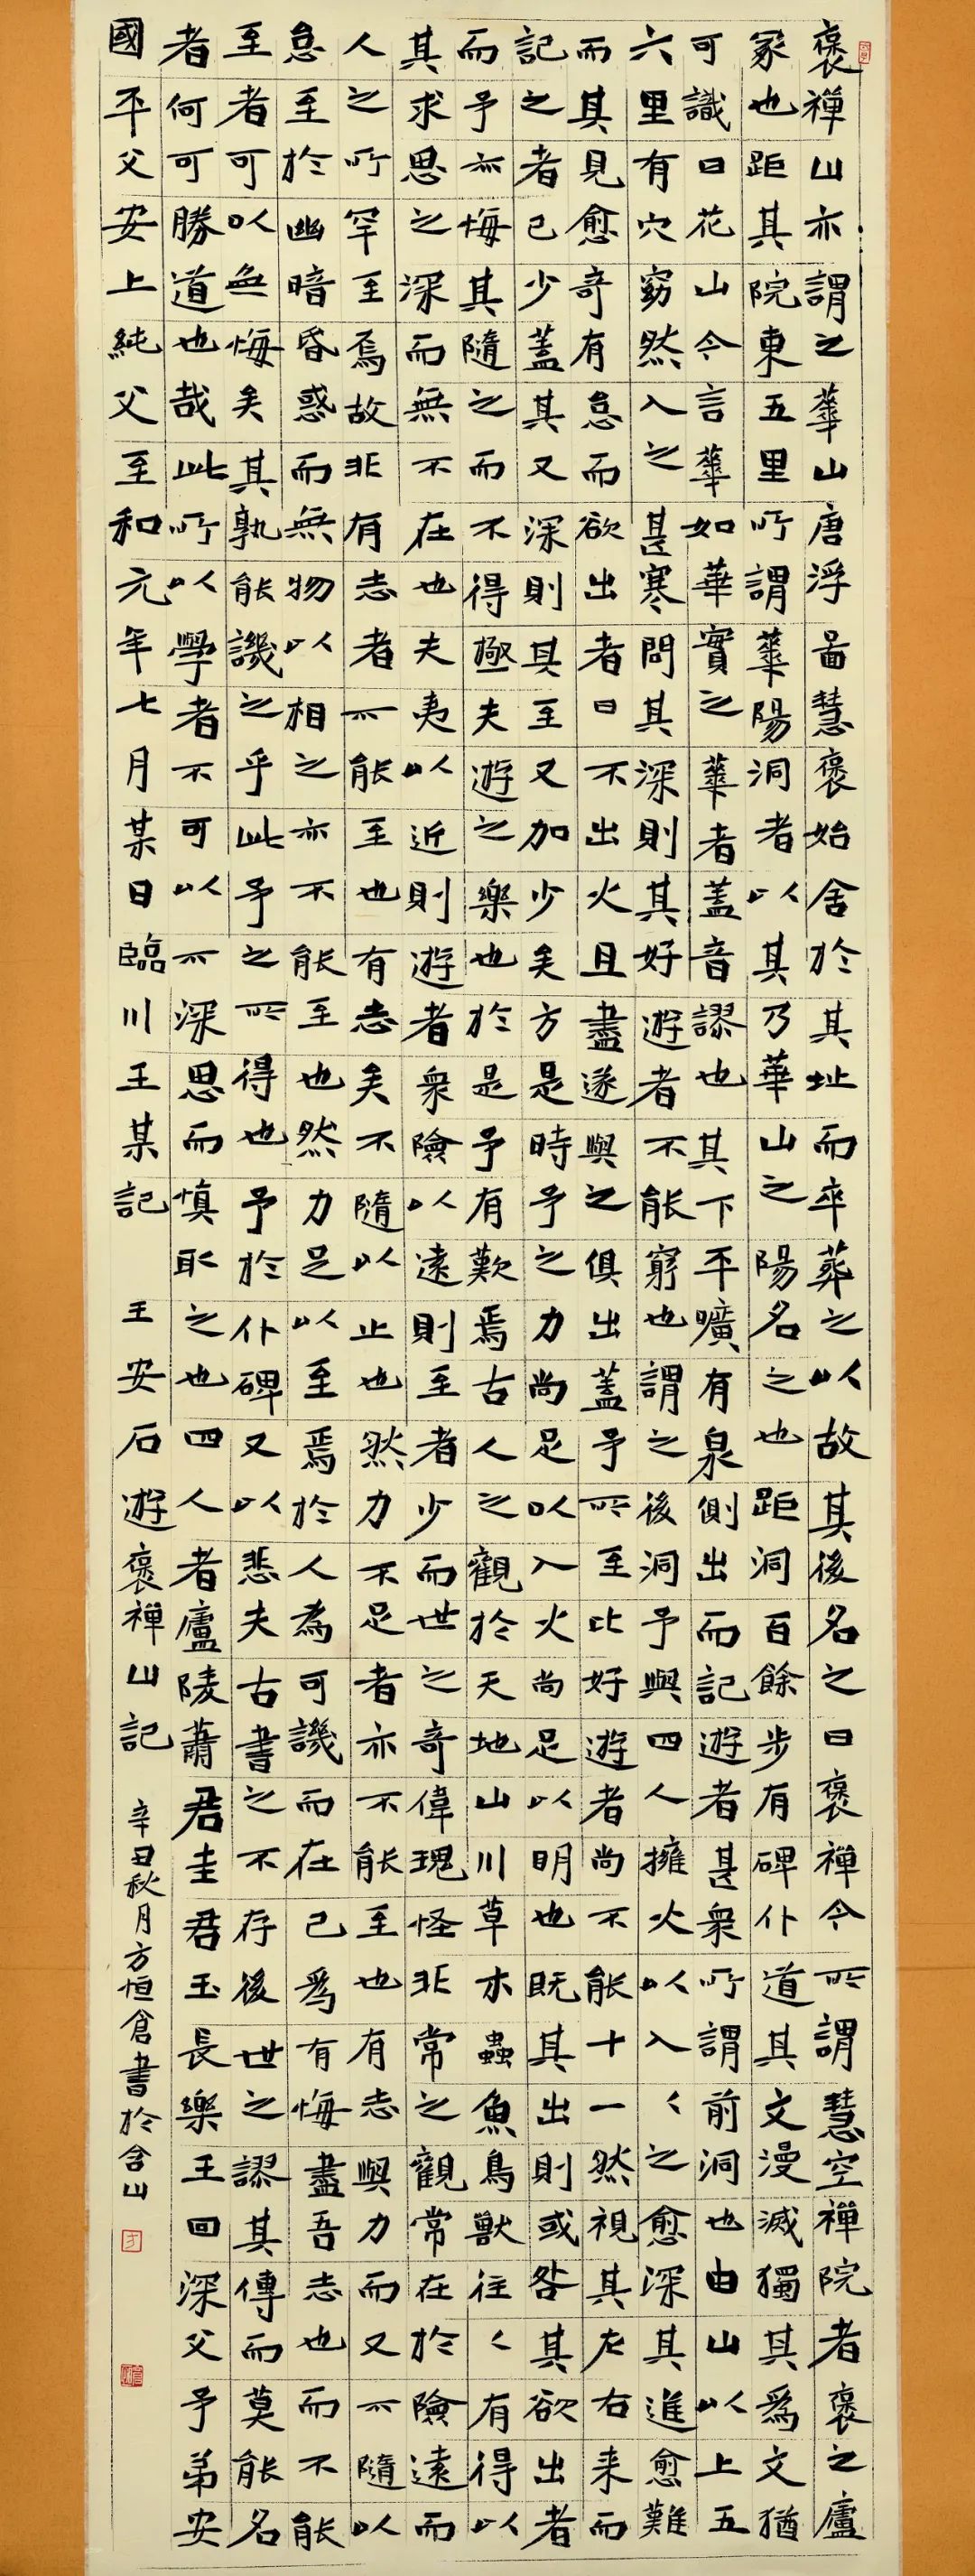 褒禪山亦謂之華山唐浮啚慧褒始舍於其址而卒葬之以故其後名之曰褒禪今所謂慧空禪院者褒之廬
冢也距其院東五里所謂華陽洞者以其乃華山之陽名之也距洞百餘步有碑仆道其文漫滅獨其為文猶
可識曰花山今言華如華實之華者蓋音謬也其下平曠有泉側出而記遊者甚衆所謂前洞也由山以上五
六里有穴窈然入之甚寒問其深則其好遊者不能窮也謂之後洞予與四人擁火以入〻之愈深其進愈難
而其見愈奇有怠而欲出者曰不出火且盡遂與之俱出蓋予所至比好遊者尚不能十一然視其左右来而
記之者已少蓋其又深則其至又加少矣方是時予之力尚足以入火尚足以明也既其出則或咎其欲出者
而予亦悔其隨之而不得極夫遊之樂也於是予有歎焉古人之觀於天地山川草木蟲魚鳥獸往〻有得以
其求思之深而無不在也夫夷以近則遊者衆險以遠則至者少而世之奇偉瑰怪非常之觀常在於險遠而
人之所罕至焉故非有志者不能至也有志矣不隨以止也然力不足者亦不能至也有志與力而又不隨以
怠至於幽暗昏惑而無物以相之亦不能至也然力足以至焉於人為可譏而在己為有悔盡吾志也而不能
至者可以無悔矣其孰能譏之乎此予之所得也予於仆碑又以悲夫古書之不存後世之謬其傳而莫能名
者何可勝道也哉此所以學者不可以不深思而慎取之也四人者廬陵蕭君圭君玉長樂王回深父予弟安
國平父安上純父至和元年七月某日臨川王某記 王安石遊褒禪山記 辛丑秋月方恒倉書於含山